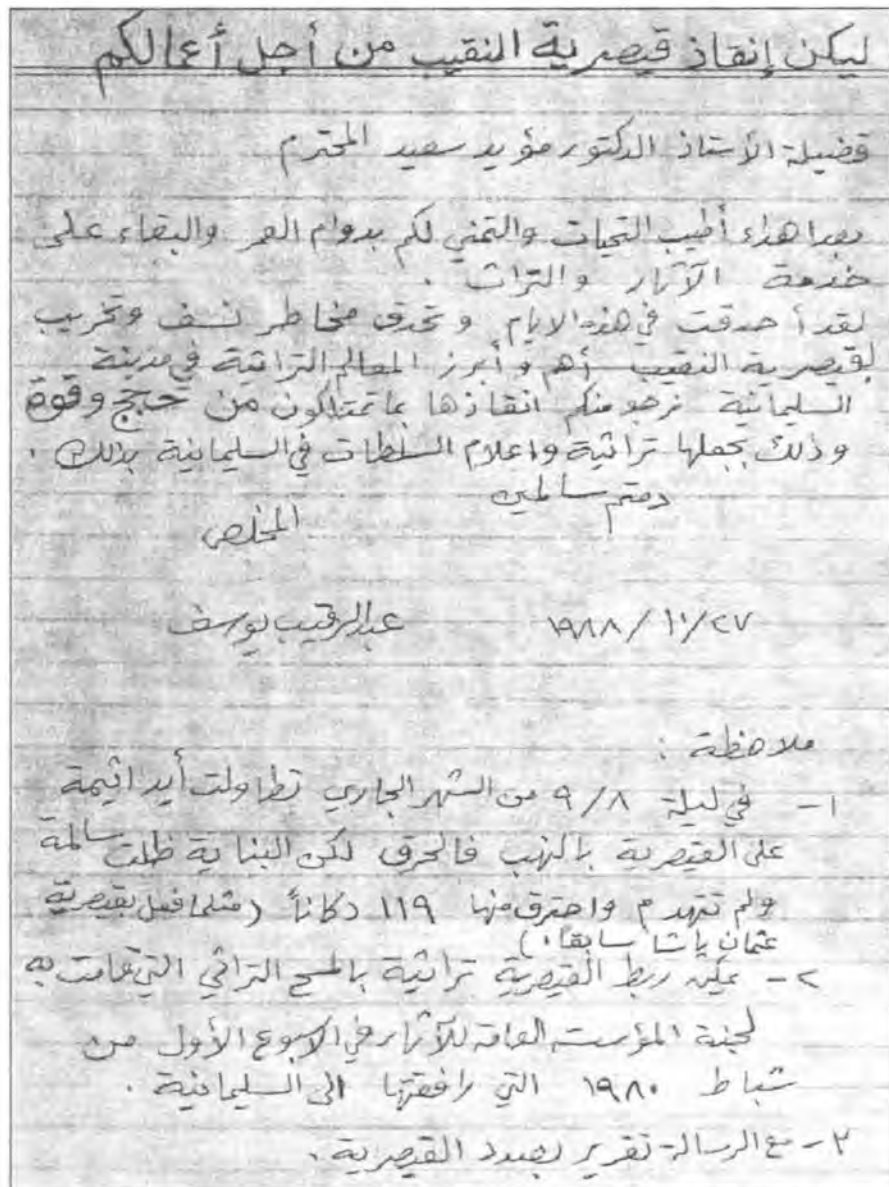 ليكن إنقاذ قيصرية النقيب من أجل أعمالكم
فضيلة الأستاذ الدكتور مؤيد سعيد المحترم
بعد اهداء أطيب التحيات والتمني لكم بدوام العمر والبقاء على
خدمة الآثار والتراث .
لقد أحدقت في هذه الايام وتحدق مخاطر نسف وتخريب
لقيصرية النقيب أهم وأبرز المعالم التراثية في مدينة
السليمانية نرجو منكم انقاذها بما تمتلكون من حجج وقوة
وذلك بجعلها تراثية واعلام السلطات في السليمانية بذلك .
دمتم سالمين
المخلص
عبدالرقيب يوسف ١٩٨٨/١٠/٢٧
ملاحظة :
١- في ليلة ٩/٨ من الشهر الجاري تطاولت أيد اثيمة
على القيصرية بالنهب فالحرق لكن البناية ظلت سالمة
ولم تتهدم واحترق منها ١١٩ دكاناً (مثلما فعل بقيصرية
عثمان پاشا سابقا.)
٢- يمكن ربط القيصرية تراثية بالمسح التراثي التي قامت به
لجنة المؤسسة العامة للآثار في الاسبوع الأول من
شباط ١٩٨٠ التي رافقتها الى السليمانية .
٣- مع الرسالة تقرير بصدد القيصرية .